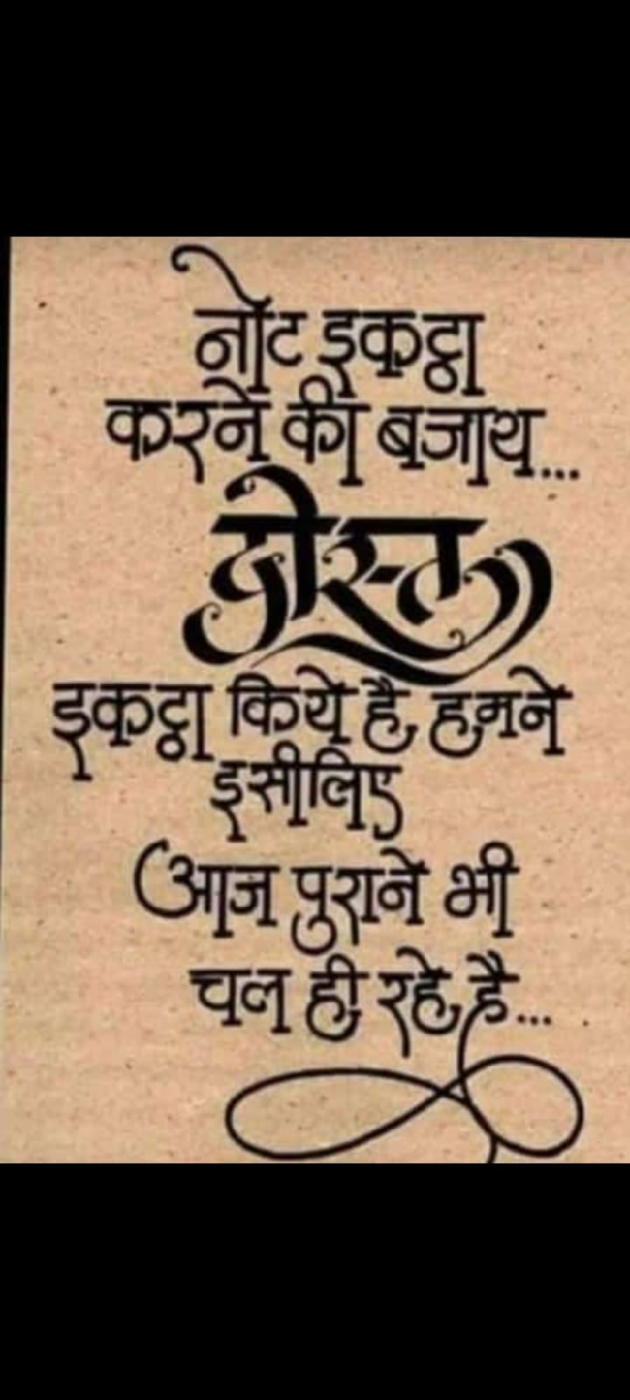 नोट इकट्ठा
करने की बजाय...
दोस्त
इकट्ठा किये है हमने
इसीलिए
आज पुराने भी
चल ही रहे है...